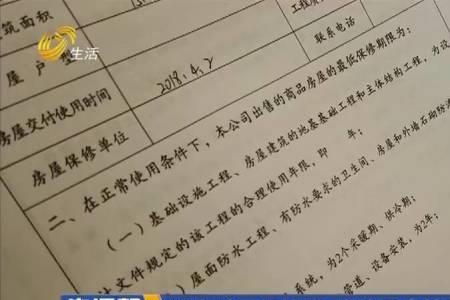 生活
筑面积
工程质
屋户型
联系电话
房屋交付使用时间
2018.4.2
房屋保修单位
二、在正常使用条件下，本公司出售的商品房屋的最低保修期限为：
（一）基础设施工程、房屋建筑的地基基础工程和主体结构工程，为设
计文件规定的该工程的合理使用年限，即 年；
）屋面防水工程、有防水要求的卫生间、房屋和外墙
系统，为2个采暖期、供冷期；
管道、设备安装，为2年；